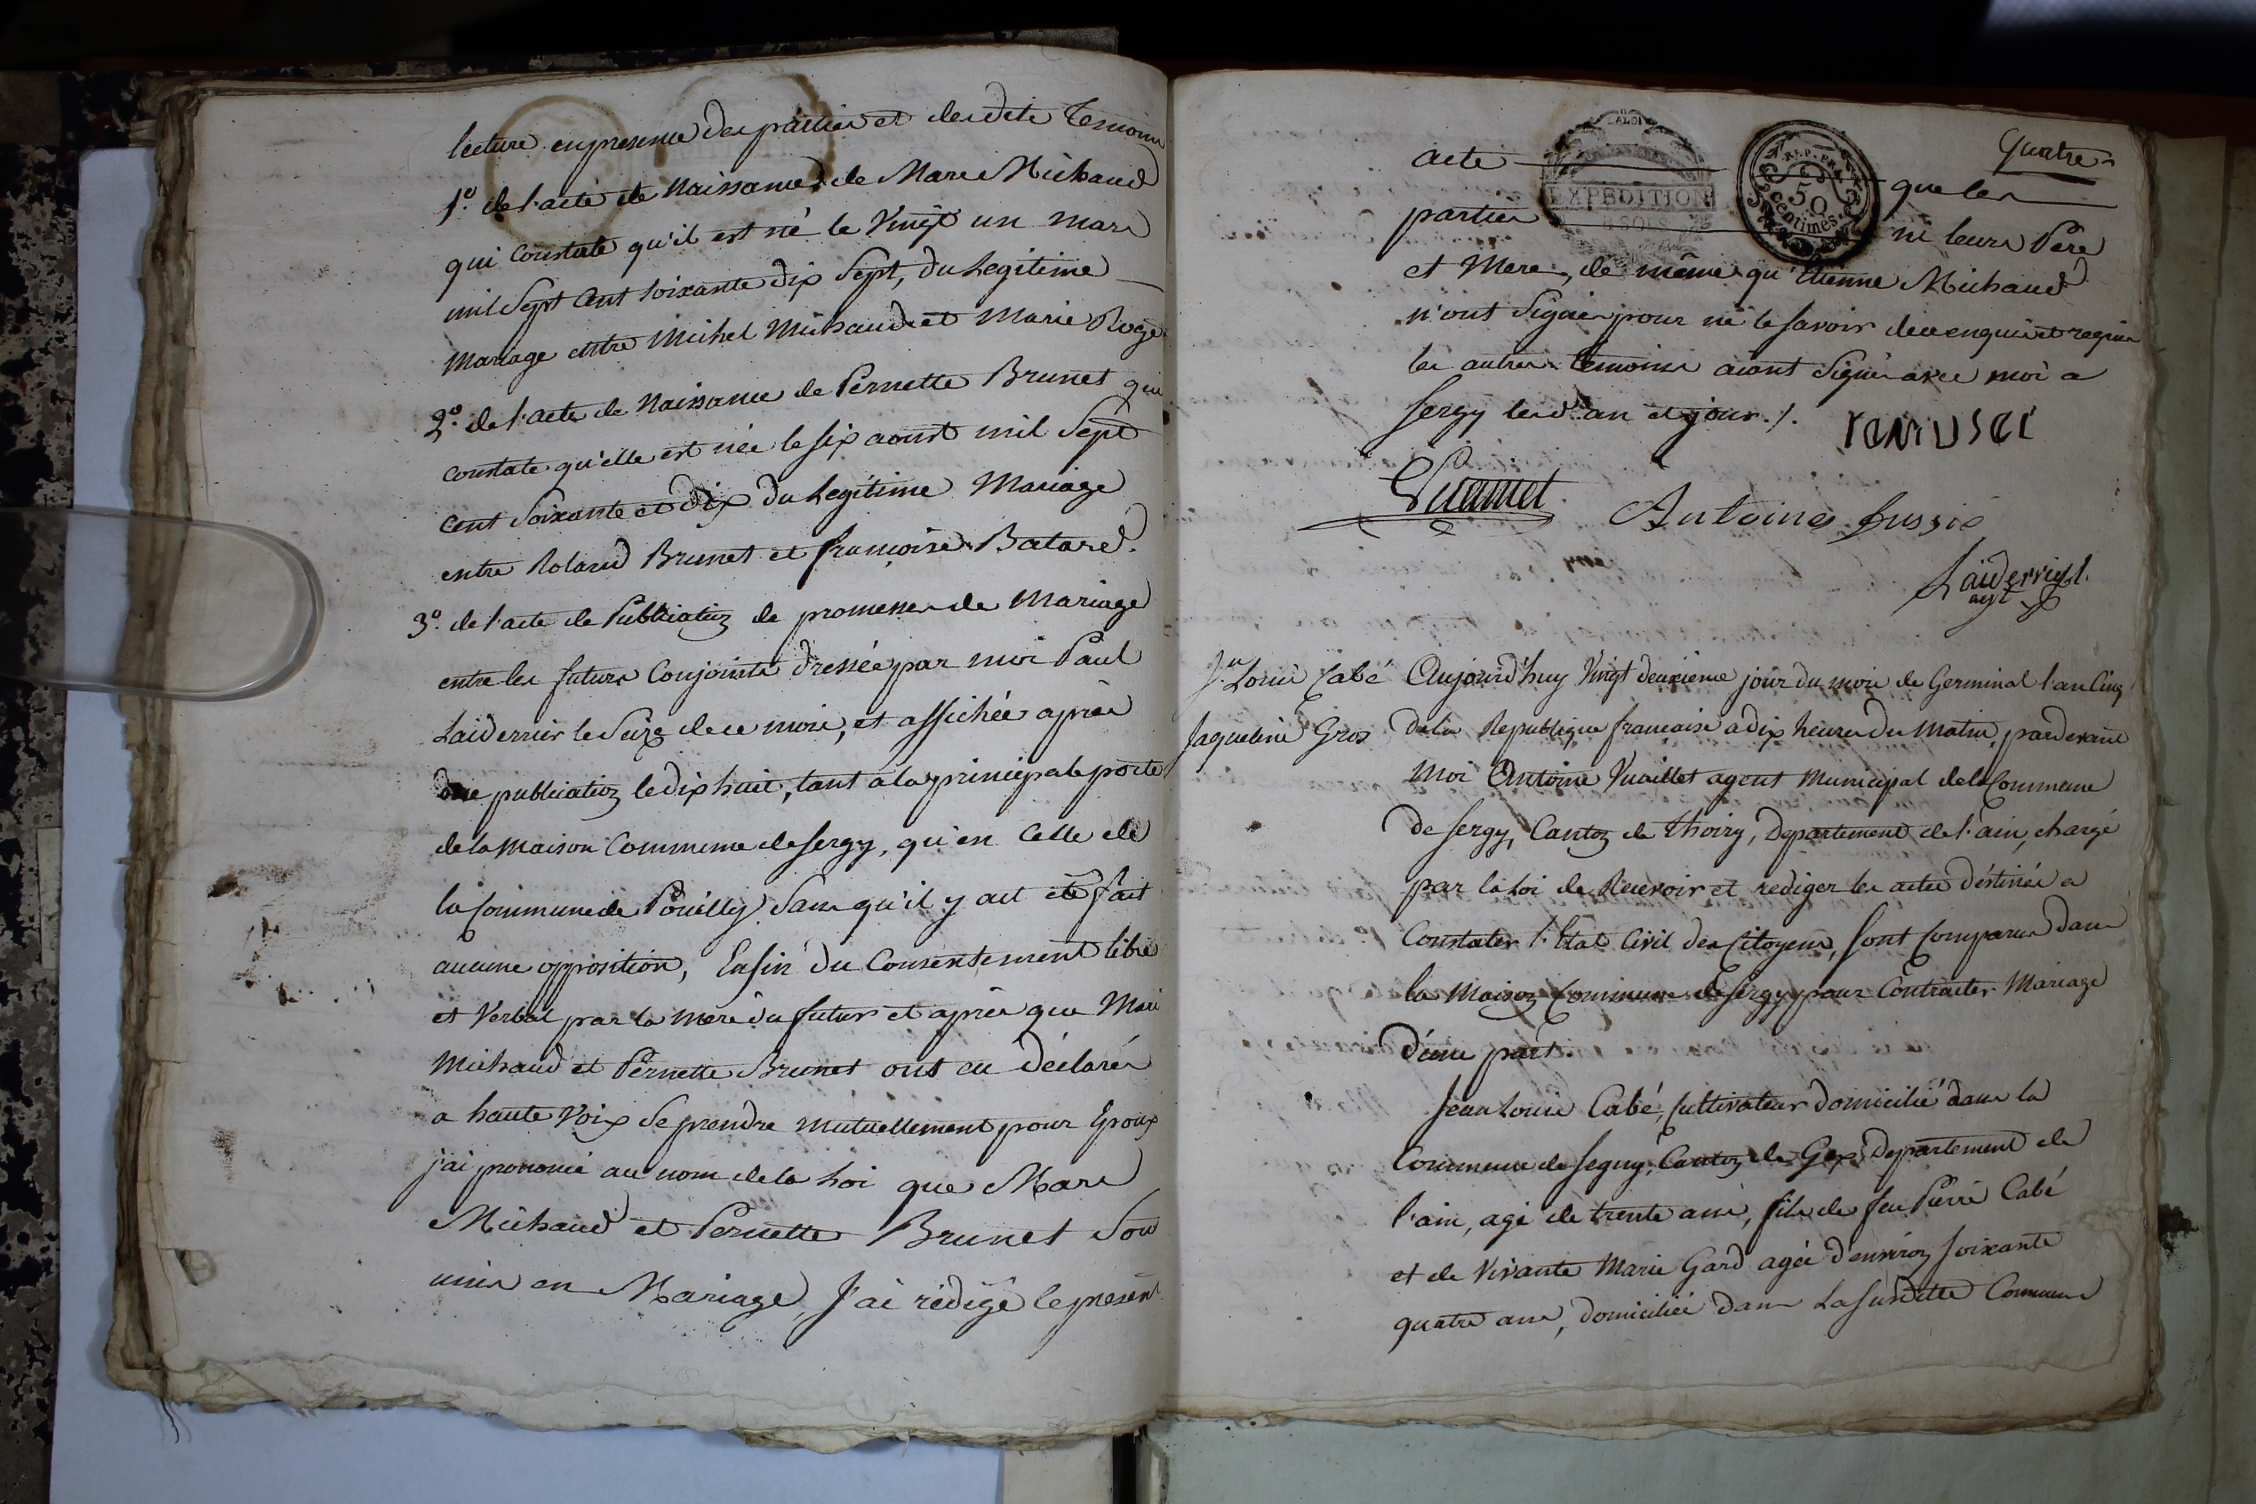 lecture en presence des parties et desdits Temoins
1º. de l'acte de Naissance de Marc Michaud
qui constate qu'il est né le Vingt un mars
mil Sept Cent soixante dix Sept, du Legitime
Mariage entre Michel Michaud et Marie Roge
2º. de l'acte de Naissance de Pernette Brunet qui
constate qu'elle est née le six aoust mil Sept
cent Soixante et dix du Legitime Mariage
entre Roland Brunet et françoise Batard.
3º. de l'acte de Publication de promesses de Mariage
entre les futurs Conjoints dressée par moi Paul
Laiderrier le Seize de ce mois, et affichée après
publication le dix huit, tant a la principale porte
de la Maison Commune de Sergy, qu'en Celle de
la Commune de Pouilly Sans qu'il y ait été fait
aucune opposition, Enfin du Consentement libre
et Verbal par la Mere du futur et après que Marc
Michaud et Pernette Brunet ont eu déclarés
a haute Voix Se prendre mutuellement pour Epoux
j'ai prononcé au nom de la Loi que Marc
Michaud et Pernette Brunet Son
unis en Mariage, J'ai rédigé le present
Quatre
acte que les
EXPEDITION
REP. FRA.
50
centimes
parties ni leurs Pere
et Mere, de même qu'Etienne Michaud
n'ont Signés pour ne le savoir de ce enquis et requis
les autres temoins aiant Signés avec moi a
Sergy lesd. an et jour ./.
Antoine
Laiderrier
agt
J.n Louis Cabé
Jaqueline Gros
Aujourd'huy Vingt deuxieme jour du mois de Germinal l'an Cinq
de la Republique francaise a dix heures du Matin, pardevant
Moi Antoine Vuaillet agent Municipal de la Commune
de Sergy, Canton de Thoiry, Departement de l'ain, chargé
par la Loi de Recevoir et rediger les actes déstinés a
Constater l'Etat Civil des Citoyens, sont Comparus dans
la Maison Commune de Sergy pour Contracter Mariage
d'une part.
Jean Louis Cabé, Cultivateur domicilié dans la
Commune de Segny, Canton de Gex Departement de
l'ain, agé de trente ans, fils de feu Pierre Cabé
et de Vivante Marie Gard agée d'environ soixante
quatre ans, domiciliée dans La susditte Commune